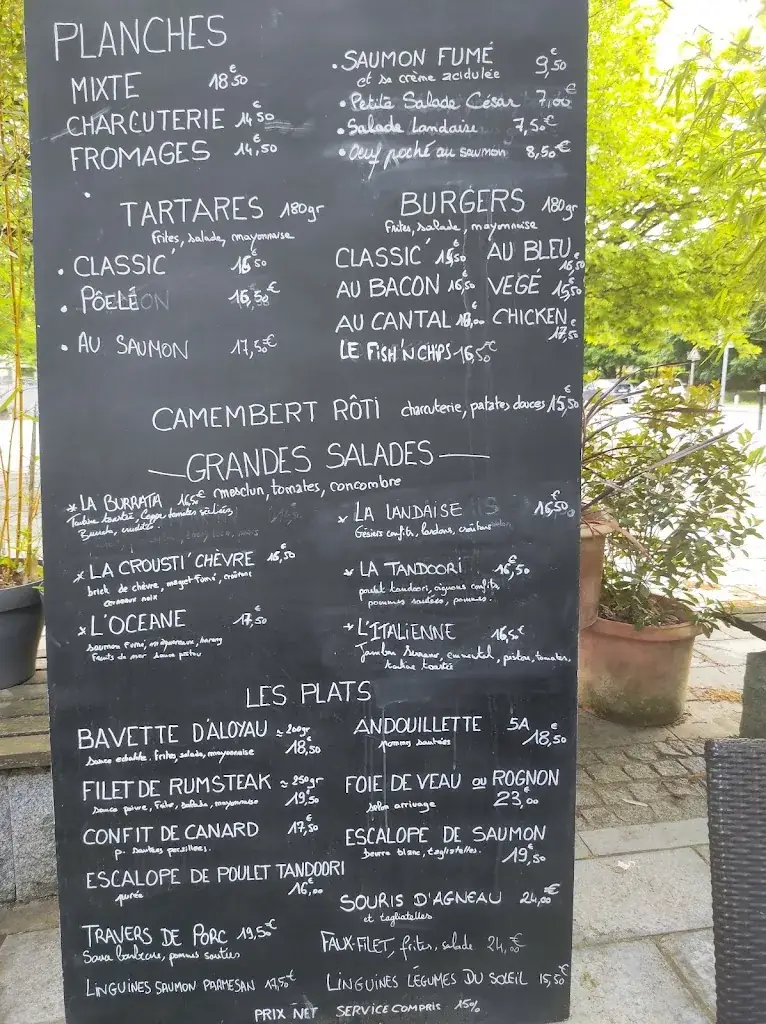 PLANCHES
MIXTE 18€50
CHARCUTERIE 14€50
FROMAGES 14€,50
• SAUMON FUMÉ 9€,50
et sa crème acidulée
• Petite Salade César 7,00€
• Salade Landaise 7,50€
• Oeuf poché au saumon 8,50€
TARTARES 180gr
Frites, salade, mayonnaise
• CLASSIC' €50
• PÔELÉ 16,50€
• AU SAUMON 17,50€
BURGERS 180gr
Frites, salade, mayonnaise
CLASSIC' 15€50 AU BLEU 16€,50
AU BACON 16€,50 VEGÉ 15€50
AU CANTAL 18€,00 CHICKEN 17€,50
LE FISH'N CHIPS 16,50€
CAMEMBERT RÔTI charcuterie, patates douces 15€,50
GRANDES SALADES
mesclun, tomates, concombre
* LA BURRATA 16,50€
Tartine toastée, Coppa, tomates séchées
Burrata, crudités
* LA CROUSTI'CHÈVRE €,50
brick de chèvre, magret Fumé, croûtons
cerneaux noix
* L'OCEANE 17€,50
saumon Fumé, hareng
Fruits de mer sauce pistou
* LA LANDAISE 16€,50
Gésiers confits, lardons, croûtons
* LA TANDOORI 16€,50
poulet tandoori, oignons confits
pommes sautées, pommes.
* L'ITALIENNE 16,5€
Jambon Serrano, emmental, pistou, tomates,
tartine toastée
LES PLATS
BAVETTE D'ALOYAU ≃ 200gr
sauce échalote. frites, salade, mayonnaise 18€,50
FILET DE RUMSTEAK ≃ 250gr
sauce poivre, frites, salade, mayonnaise 19€,50
CONFIT DE CANARD 17€,50
p. sautées persillées.
ESCALOPE DE POULET TANDOORI
purée 16€,00
TRAVERS DE PORC 19,50€
Sauce barbecue, pommes sautées
LINGUINES SAUMON PARMESAN 17,50€
ANDOUILLETTE 5A
pommes sautées 18€,50
FOIE DE VEAU ou ROGNON
selon arrivage 23€,00
ESCALOPE DE SAUMON
beurre blanc, tagliatelles. 19€,50
SOURIS D'AGNEAU 24,00€
et tagliatelles
FAUX-FILET, frites, salade 24,€
LINGUINES LÉGUMES DU SOLEIL 15,50€
PRIX NET SERVICE COMPRIS 15%